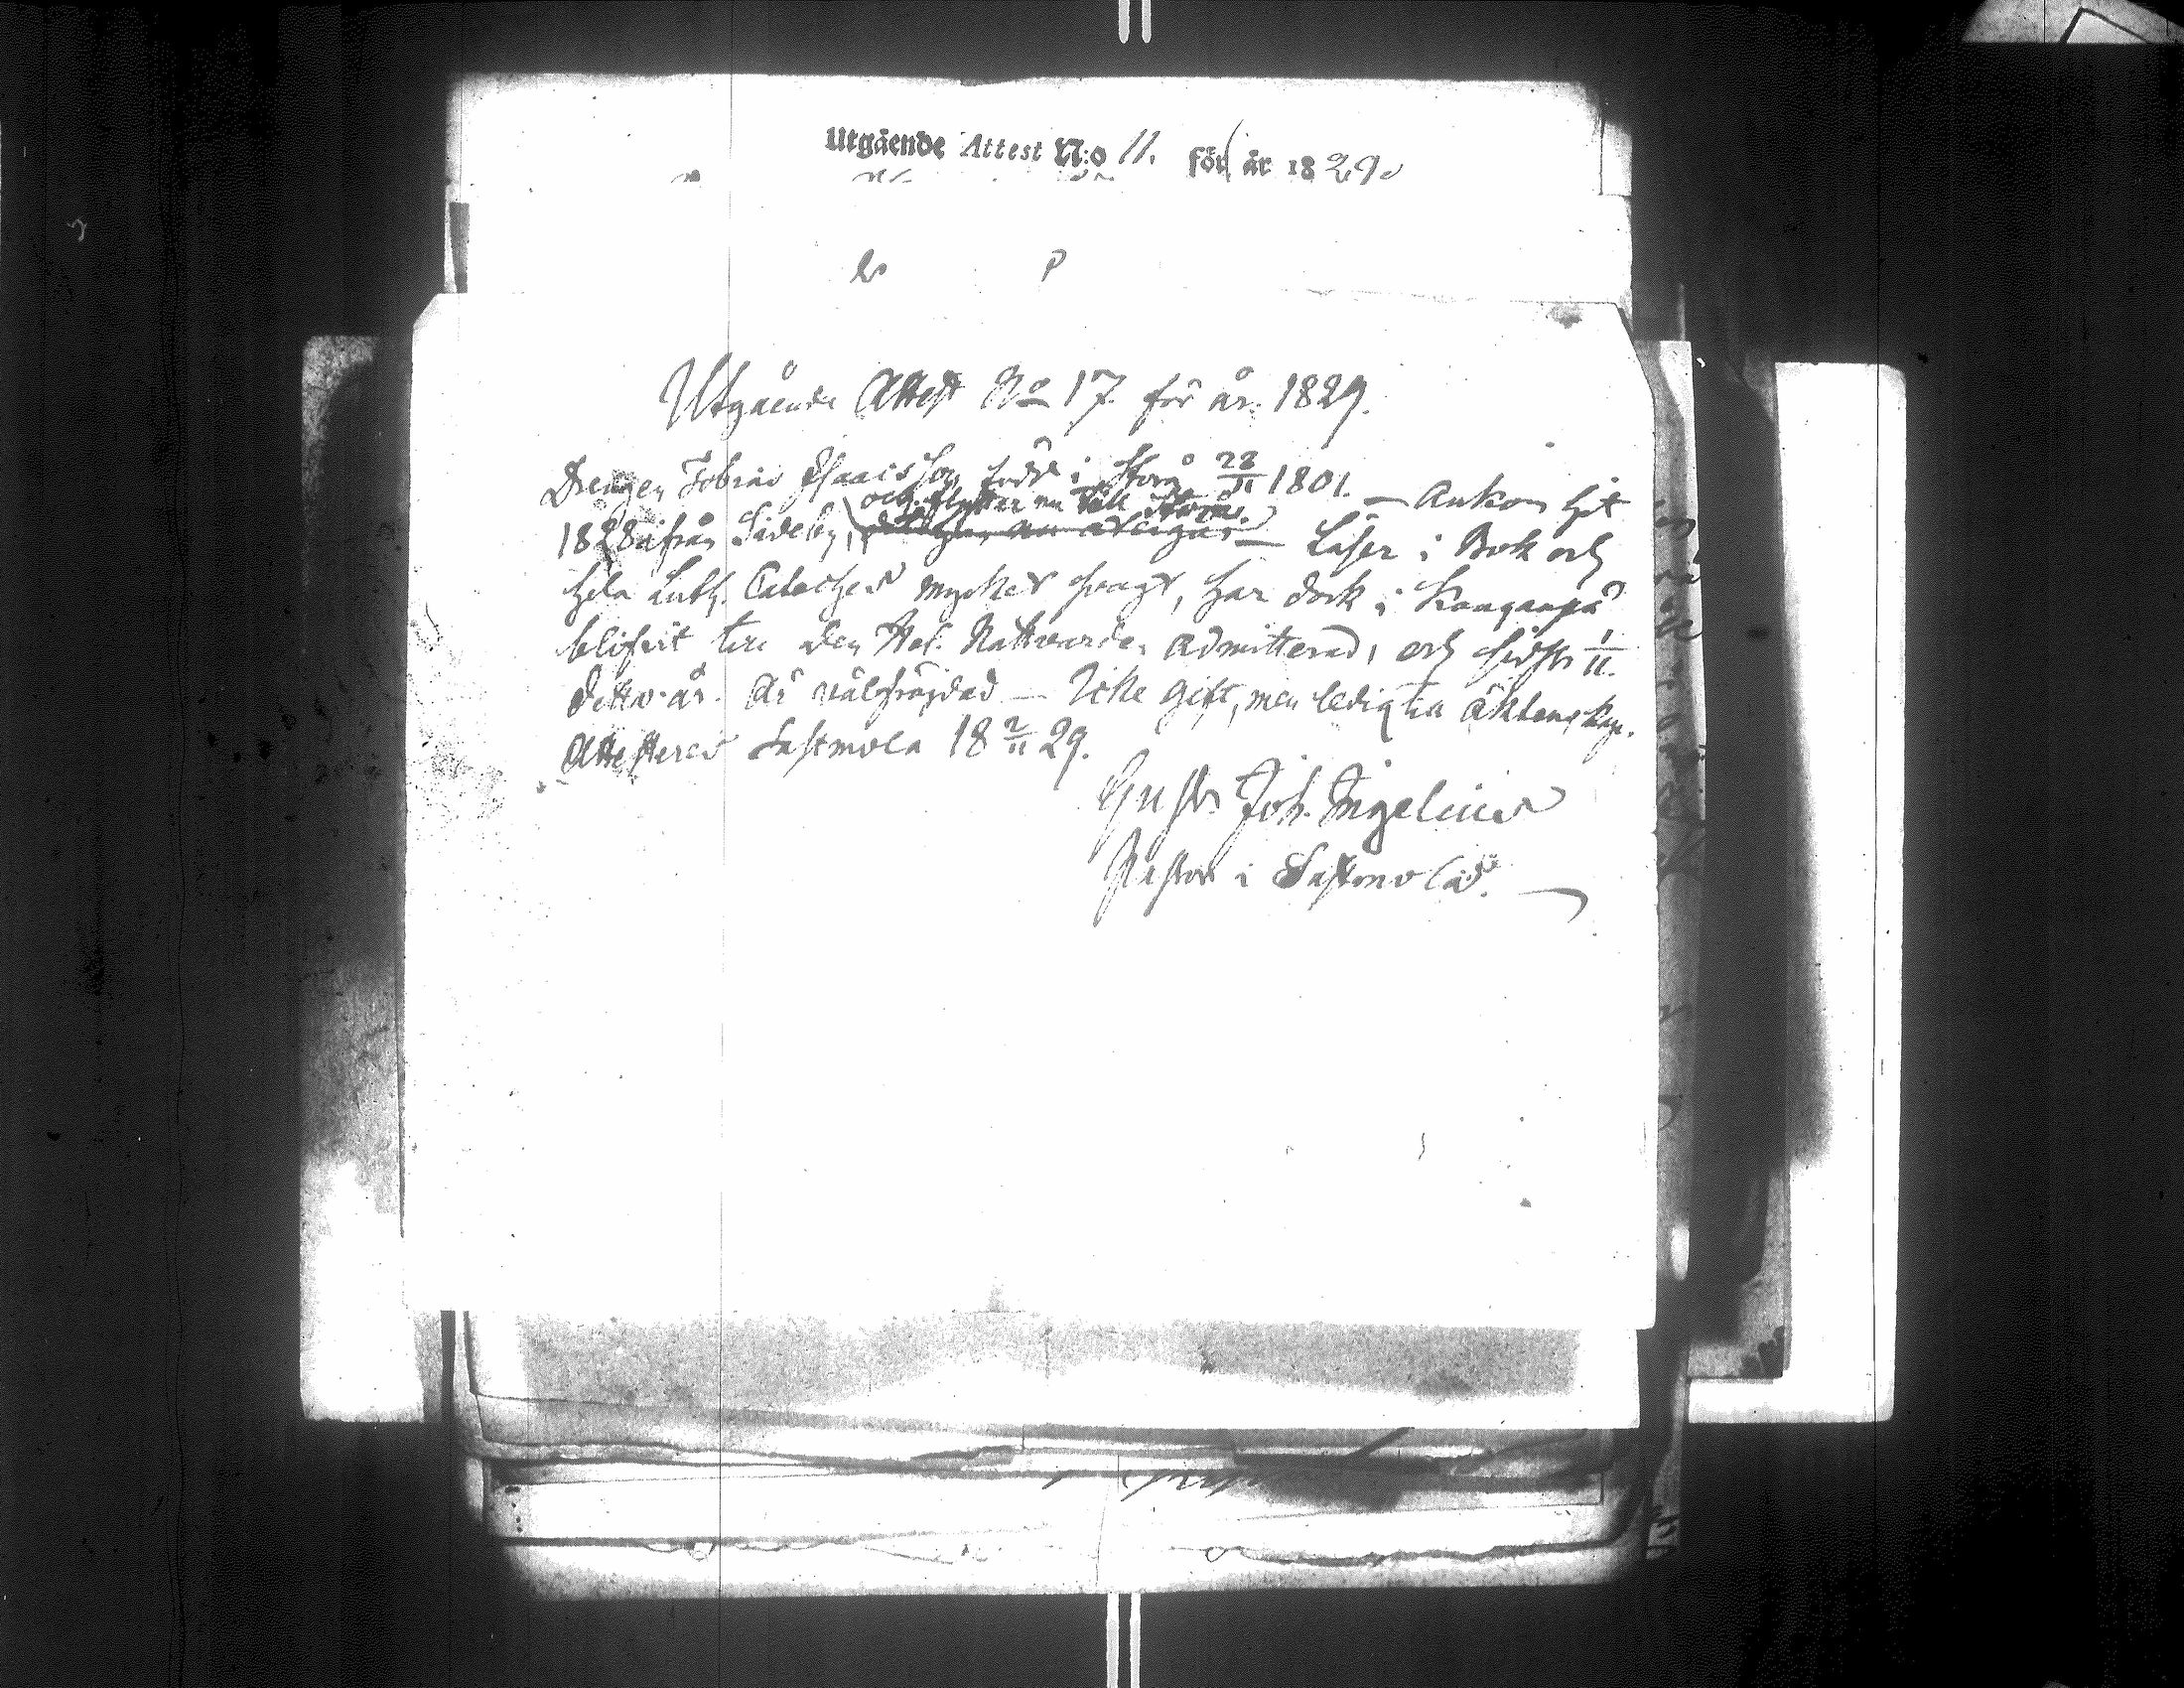 Utgående Attest N:o 11. för år 1829.
Utgående Attest No 17. för år. 1829.
Drengen Tobias Isaacsson, född i Storå 28/11 1801. — Ankom hit
och flyttar nu till Storå.
1828 ifrån Sideby, — Läser i Bok och
hela Luth. Cateches mycket svagt, har dock i Kangaspä
blifvit till den Hel. Nattvarden admitterad, och sidst 1/11.
detta år. Är välfräjdad — Icke gift, men ledig till Äktenskap.
Attesteras Sastmola 18 2/11 29.
Gust. Joh. Ingelius
Pastor i Sastmola.